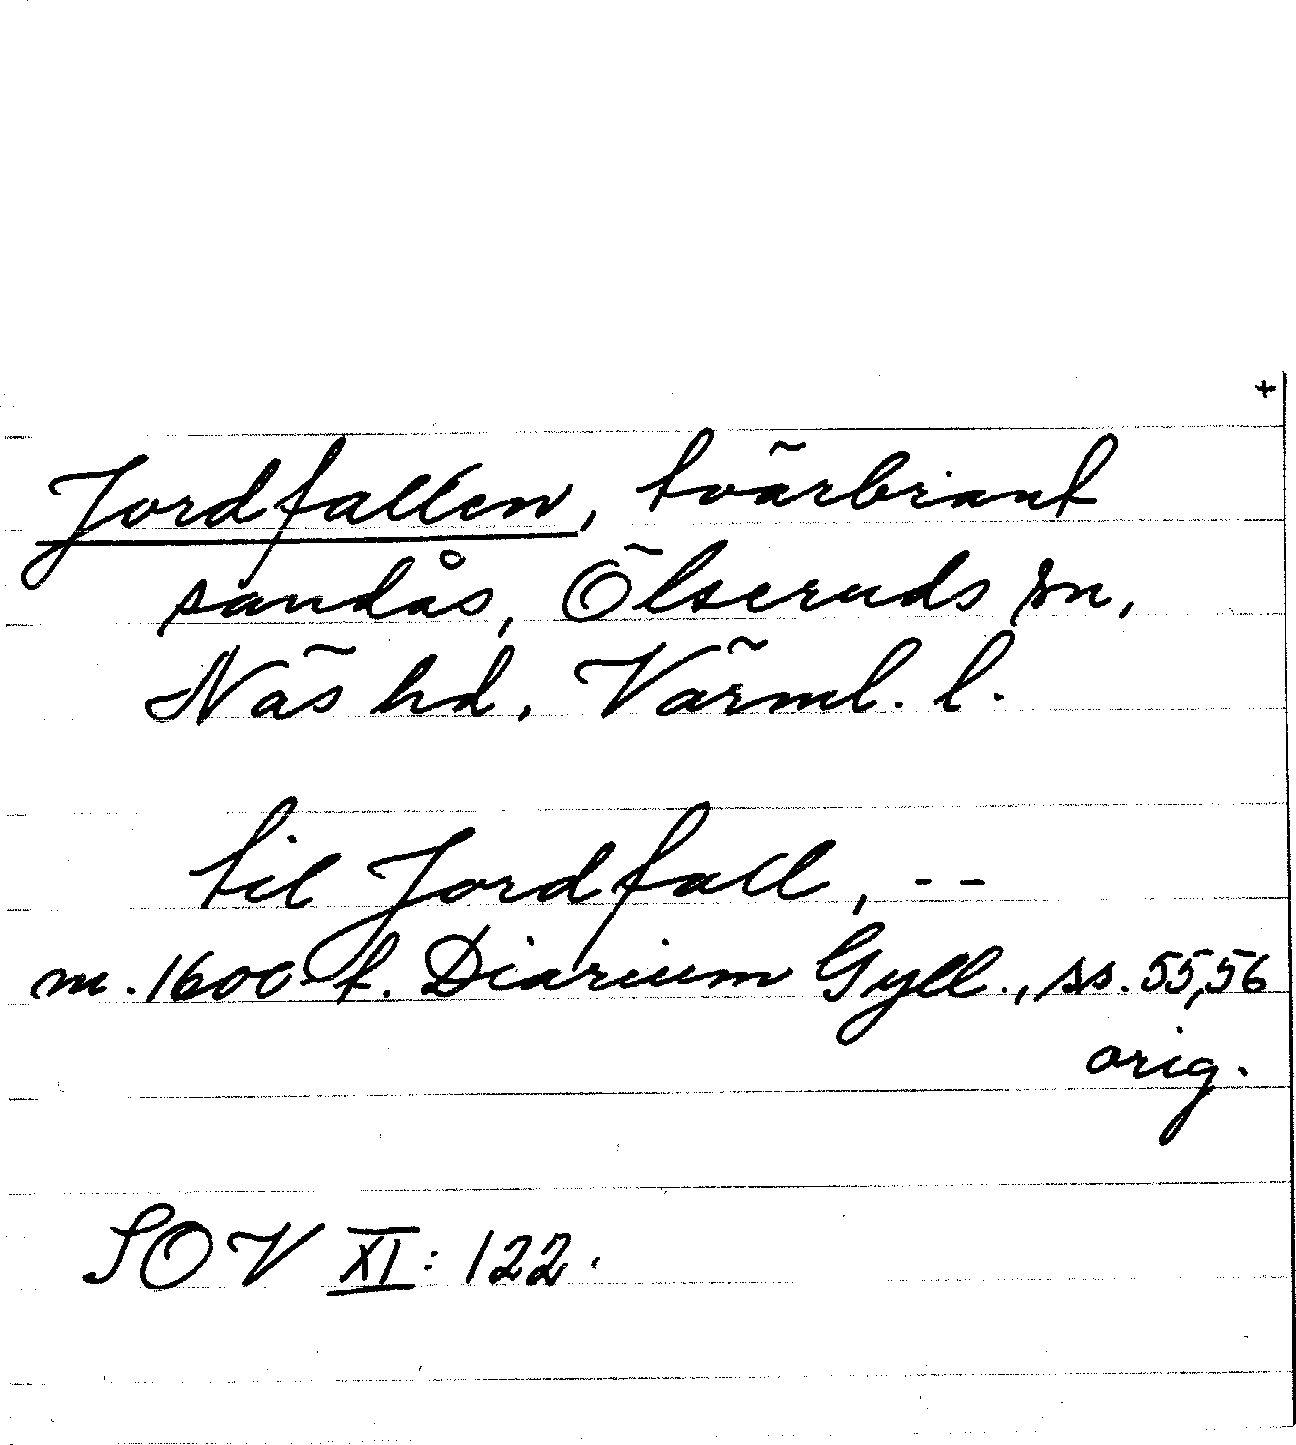 +
Jordfallen, tvärbrant
sandås, Ölseruds sn,
Näs hd, Värml. l.
til Jordfall, --
m. 1600-t. Diarium Gyll., ss. 55,56
orig.
SOV XI: 122.